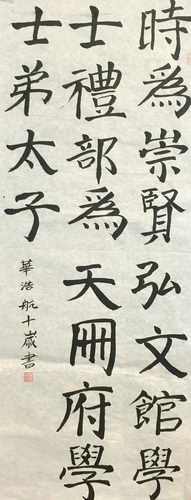 時為崇賢弘文館學
士禮部為天冊府學
士弟太子
華浩航十歲書